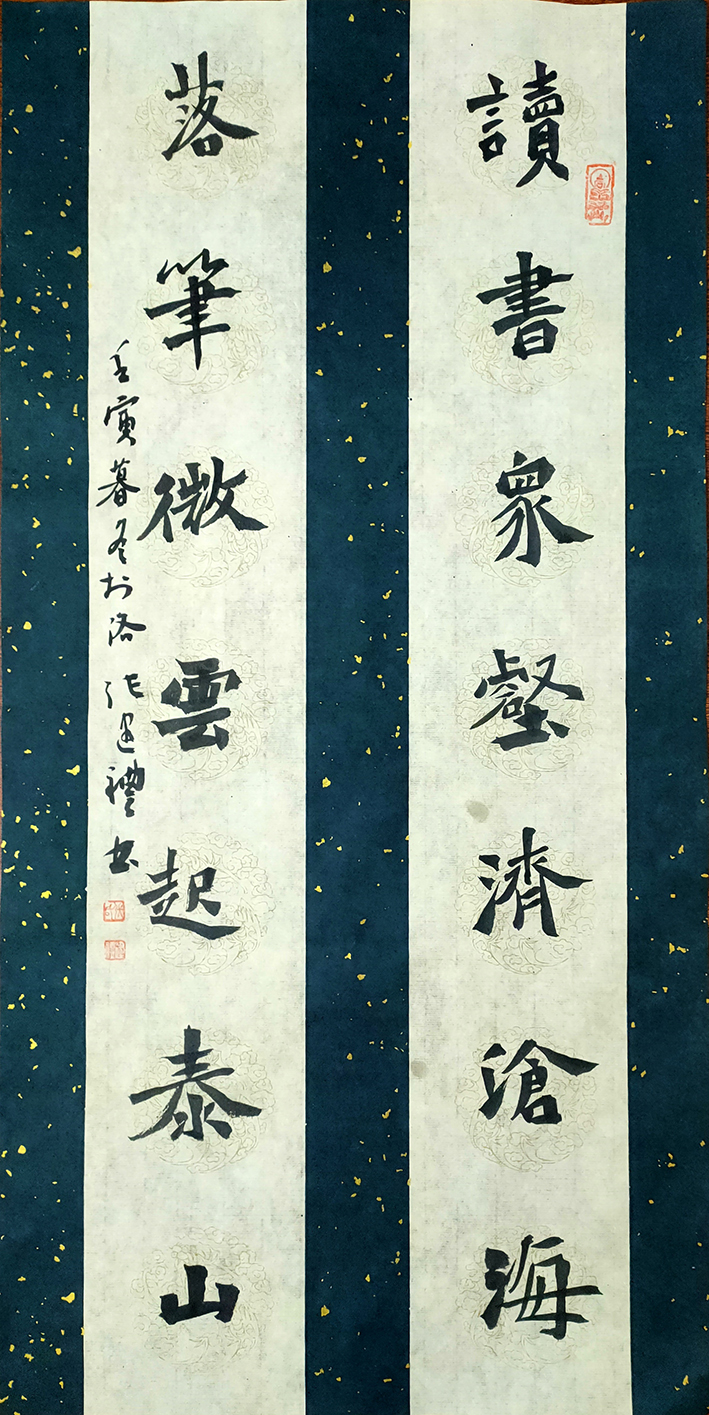 讀書衆壑濟滄海
落筆微雲起泰山
壬寅暮冬於洛 張運禮書